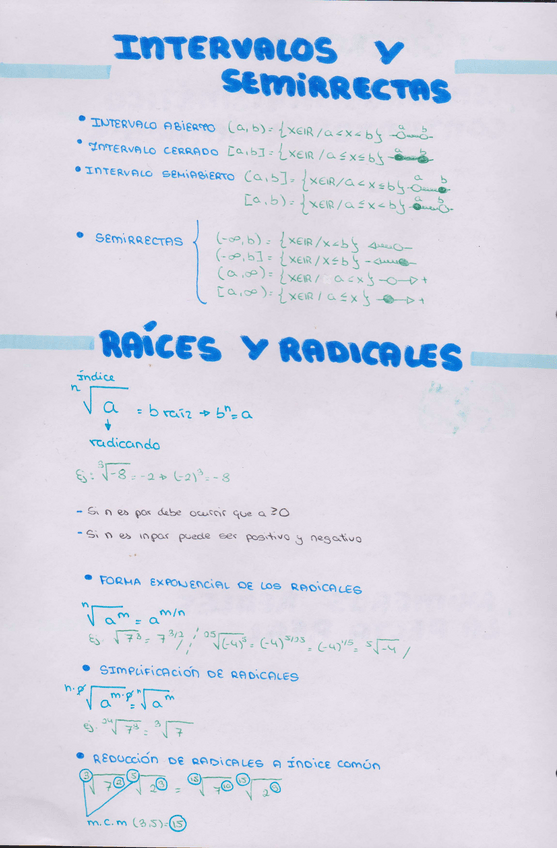 INTERVALOS Y
SEMIRRECTAS
• INTERVALO ABIERTO (a,b) = {x∈IR / a<x<b} a b
• INTERVALO CERRADO [a,b] = {x∈IR / a≤x≤b} a b
• INTERVALO SEMIABIERTO (a,b] = {x∈IR / a<x≤b} a b
[a,b) = {x∈IR / a≤x<b} a b
• SEMIRRECTAS
(-∞,b) = {x∈IR / x<b}
(-∞,b] = {x∈IR / x≤b} -
(a,∞) = {x∈IR / a<x} +
[a,∞) = {x∈IR / a≤x} +
RAÍCES Y RADICALES
índice
n√a = b raíz → bⁿ = a
radicando
Ej: ³√-8 = -2 → (-2)³ = -8
- Si n es par debe ocurrir que a ≥ 0
- Si n es inpar puede ser positivo y negativo
• FORMA EXPONENCIAL DE LOS RADICALES
ⁿ√aᵐ = a^m/n
Ej. √7³ = 7^3/2 // (-4) = (-4) = ⁵√-4 /
• SIMPLIFICACIÓN DE RADICALES
n·p√a^m·p = ⁿ√aᵐ
Ej = ³√7
• REDUCCIÓN DE RADICALES A ÍNDICE COMÚN
³√7² ⁵√2³ = ¹⁵√7¹⁰ ¹⁵√2⁹
m.c.m (3,5) = 15